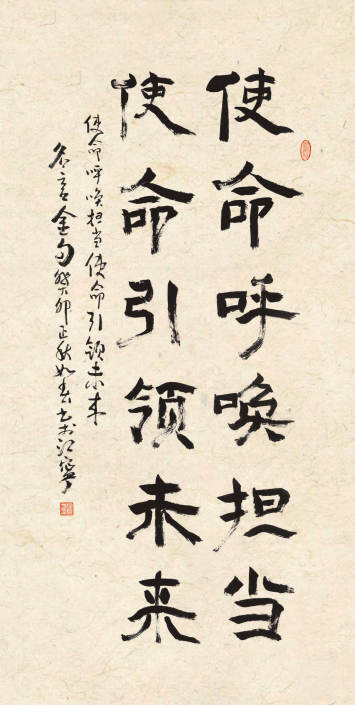 使命呼唤担当
使命引领未来
使命呼唤担当使命引领未来
名言金句癸卯正秋如春书于江宁